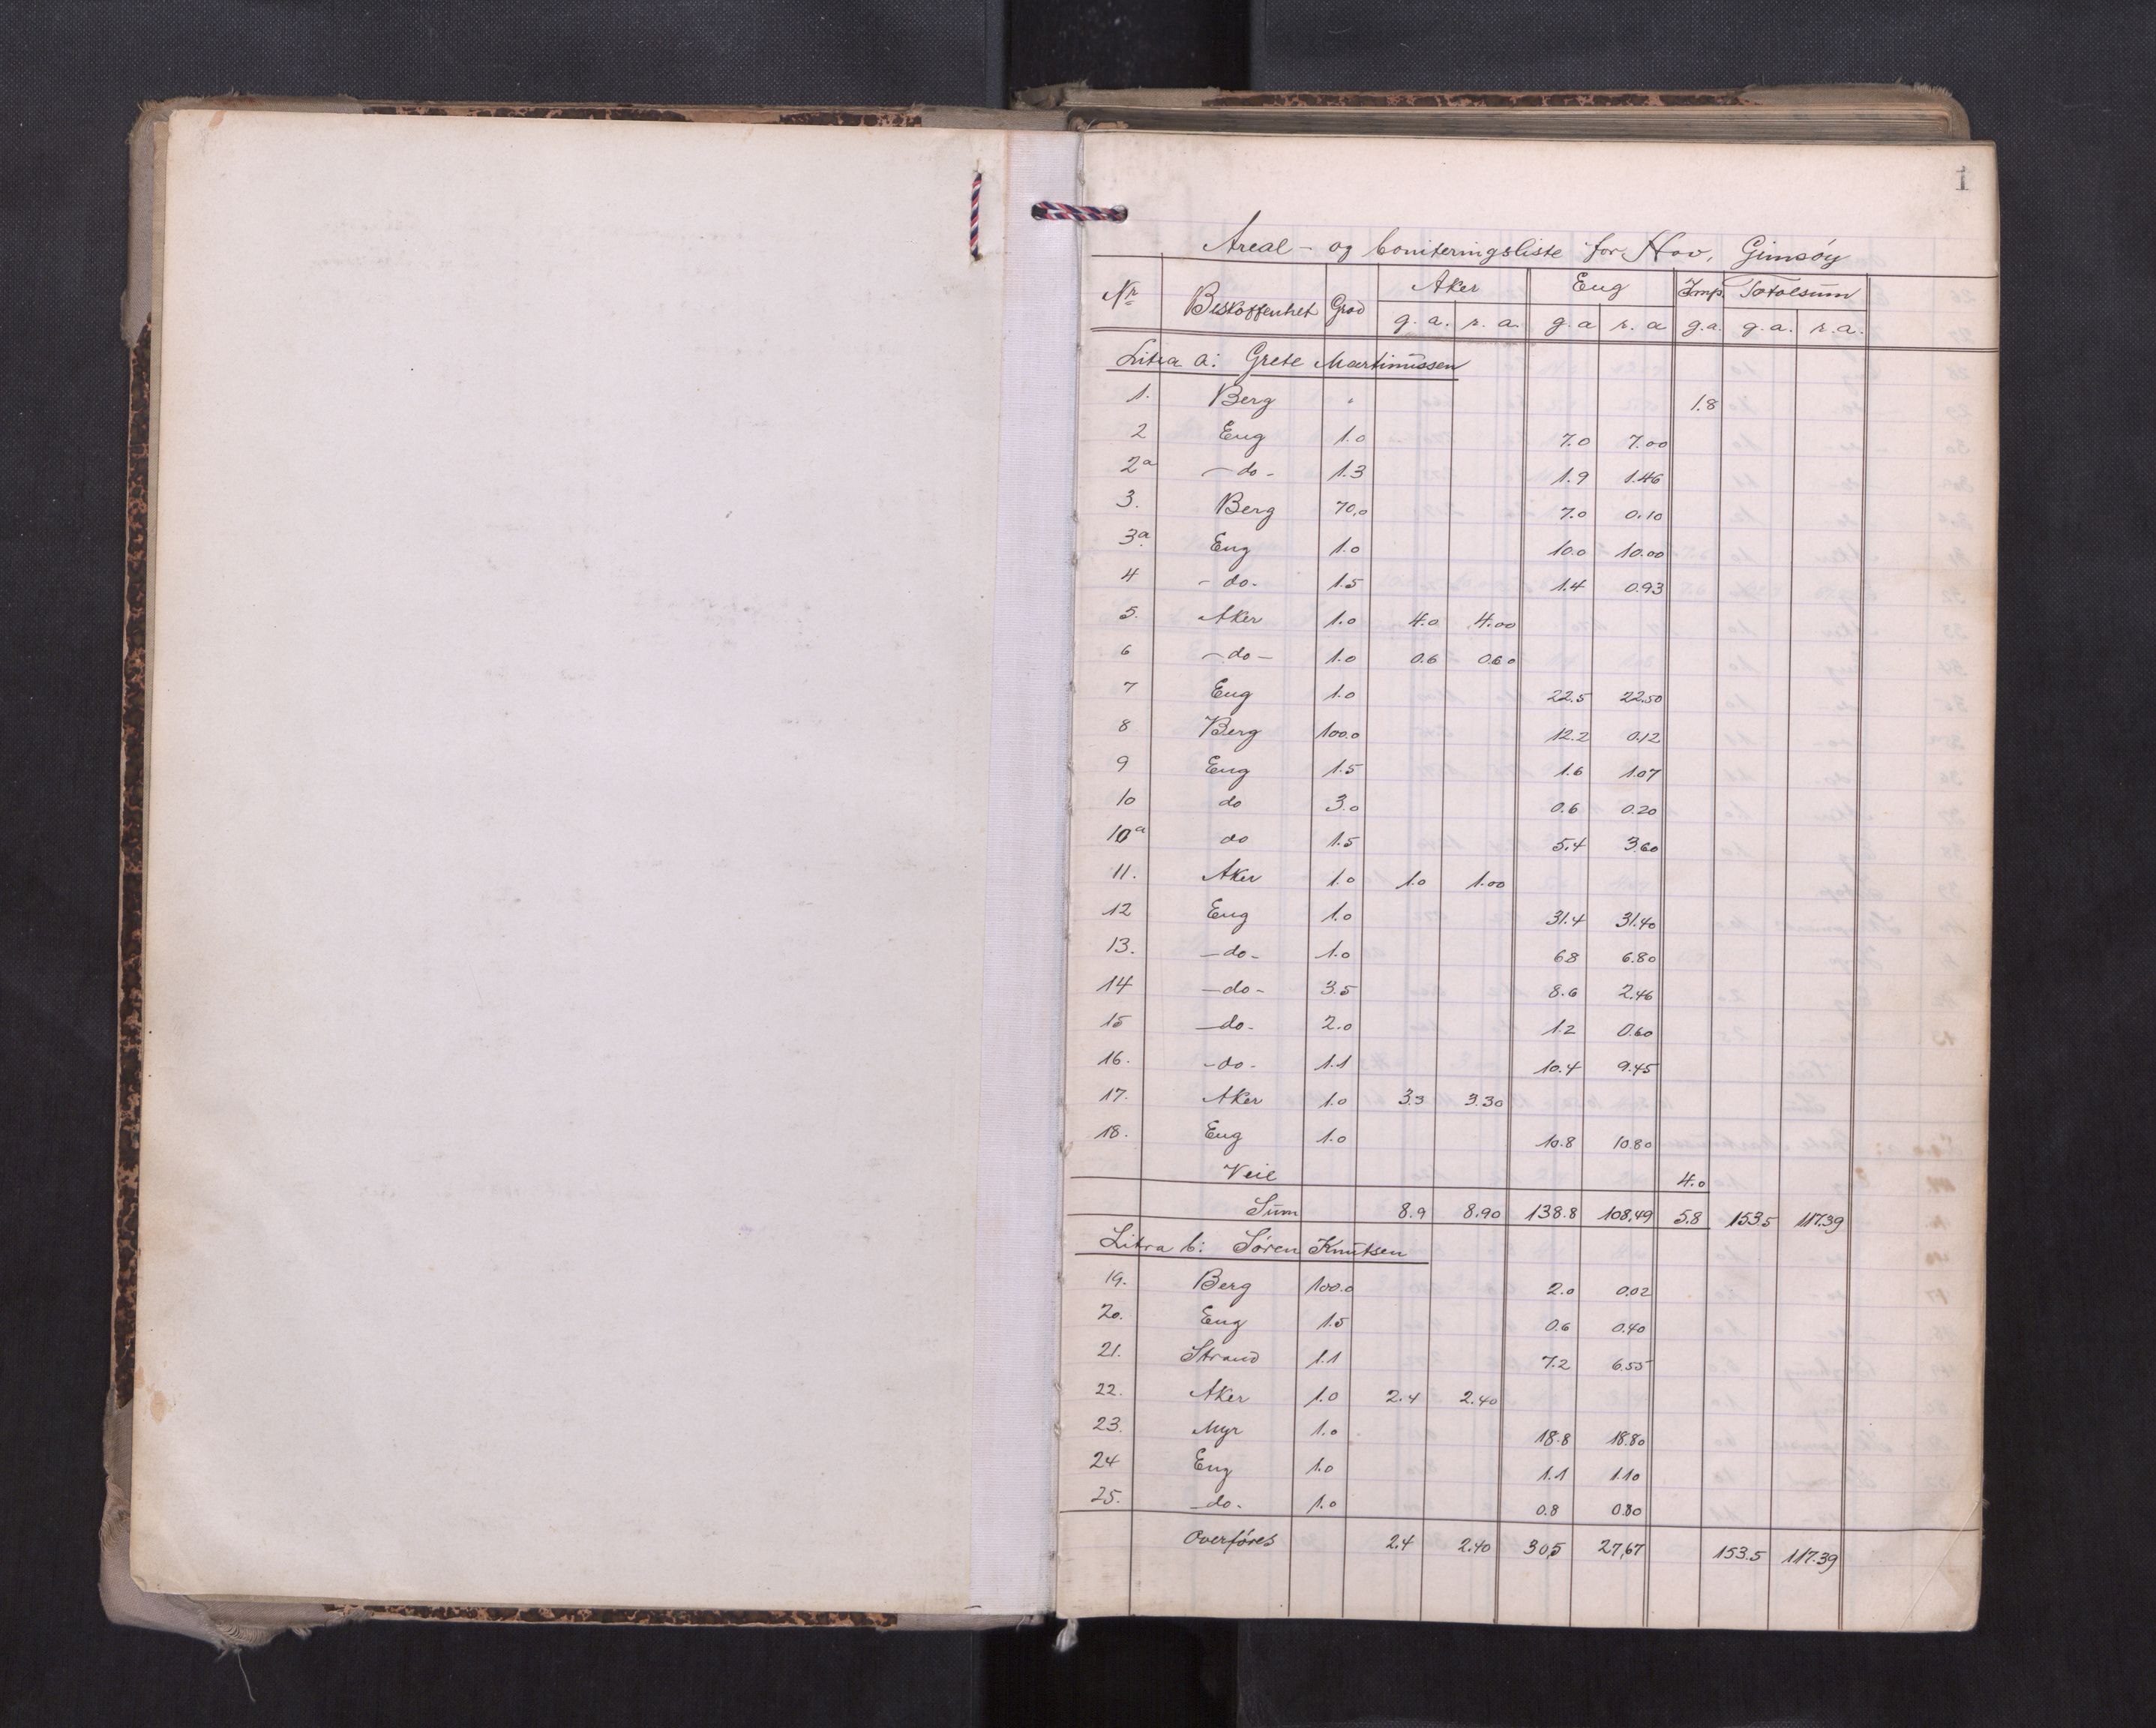 1
Areal- og boniteringsliste for Hov, Gimsöy
Nr. Beskaffenhet Grad Aker Eng Imp. Totalsum
g. a. r. a. g. a r. a g. a. g. a. r. a.
Litra a: Grete Martinussen
1. Berg 1.8
2 Eng 1.0 7.0 7.00
2a - do - 1.3 1.9 1.46
3. Berg 70.0 7.0 0.10
3a. Eng 1.0 10.0 10.00
4 - do. 1.5 1.4 0.93
5. Aker 1.0 4.0 4.00
6 - do - 1.0 0.6 0.60
7 Eng 1.0 22.5 22.50
8 Berg 100.0 12.2 0.12
9 Eng 1.5 1.6 1.07
10 do 3.0 0.6 0.20
10a do 1.5 5.4 3.60
11. Aker 1.0 1.0 1.00
12 Eng 1.0 31.4 31.40
13. - do - 1.0 6.8 6.80
14 - do - 3.5 8.6 2.46
15 - do - 2.0 1.2 0.60
16. - do - 1.1 10.4 9.45
17. Aker 1.0 3.3 3.30
18. Eng 1.0 10.8 10.80
Veie 4.0
Sum 8.9 8.90 138.8 108.49 5.8 153.5 117.39
Litra b: Søren Knutsen
19. Berg 100.0 2.0 0.02
20. Eng 1.5 0.6 0.40
21. Strand 1.1 7.2 6.55
22. Aker 1.0 2.4 2.40
23. Myr 1.0 18.8 18.80
24 Eng 1.0 1.1 1.10
25. - do - 1.0 0.8 0.80
Overføres 2.4 2.40 30,5 27,67 153.5 117.39